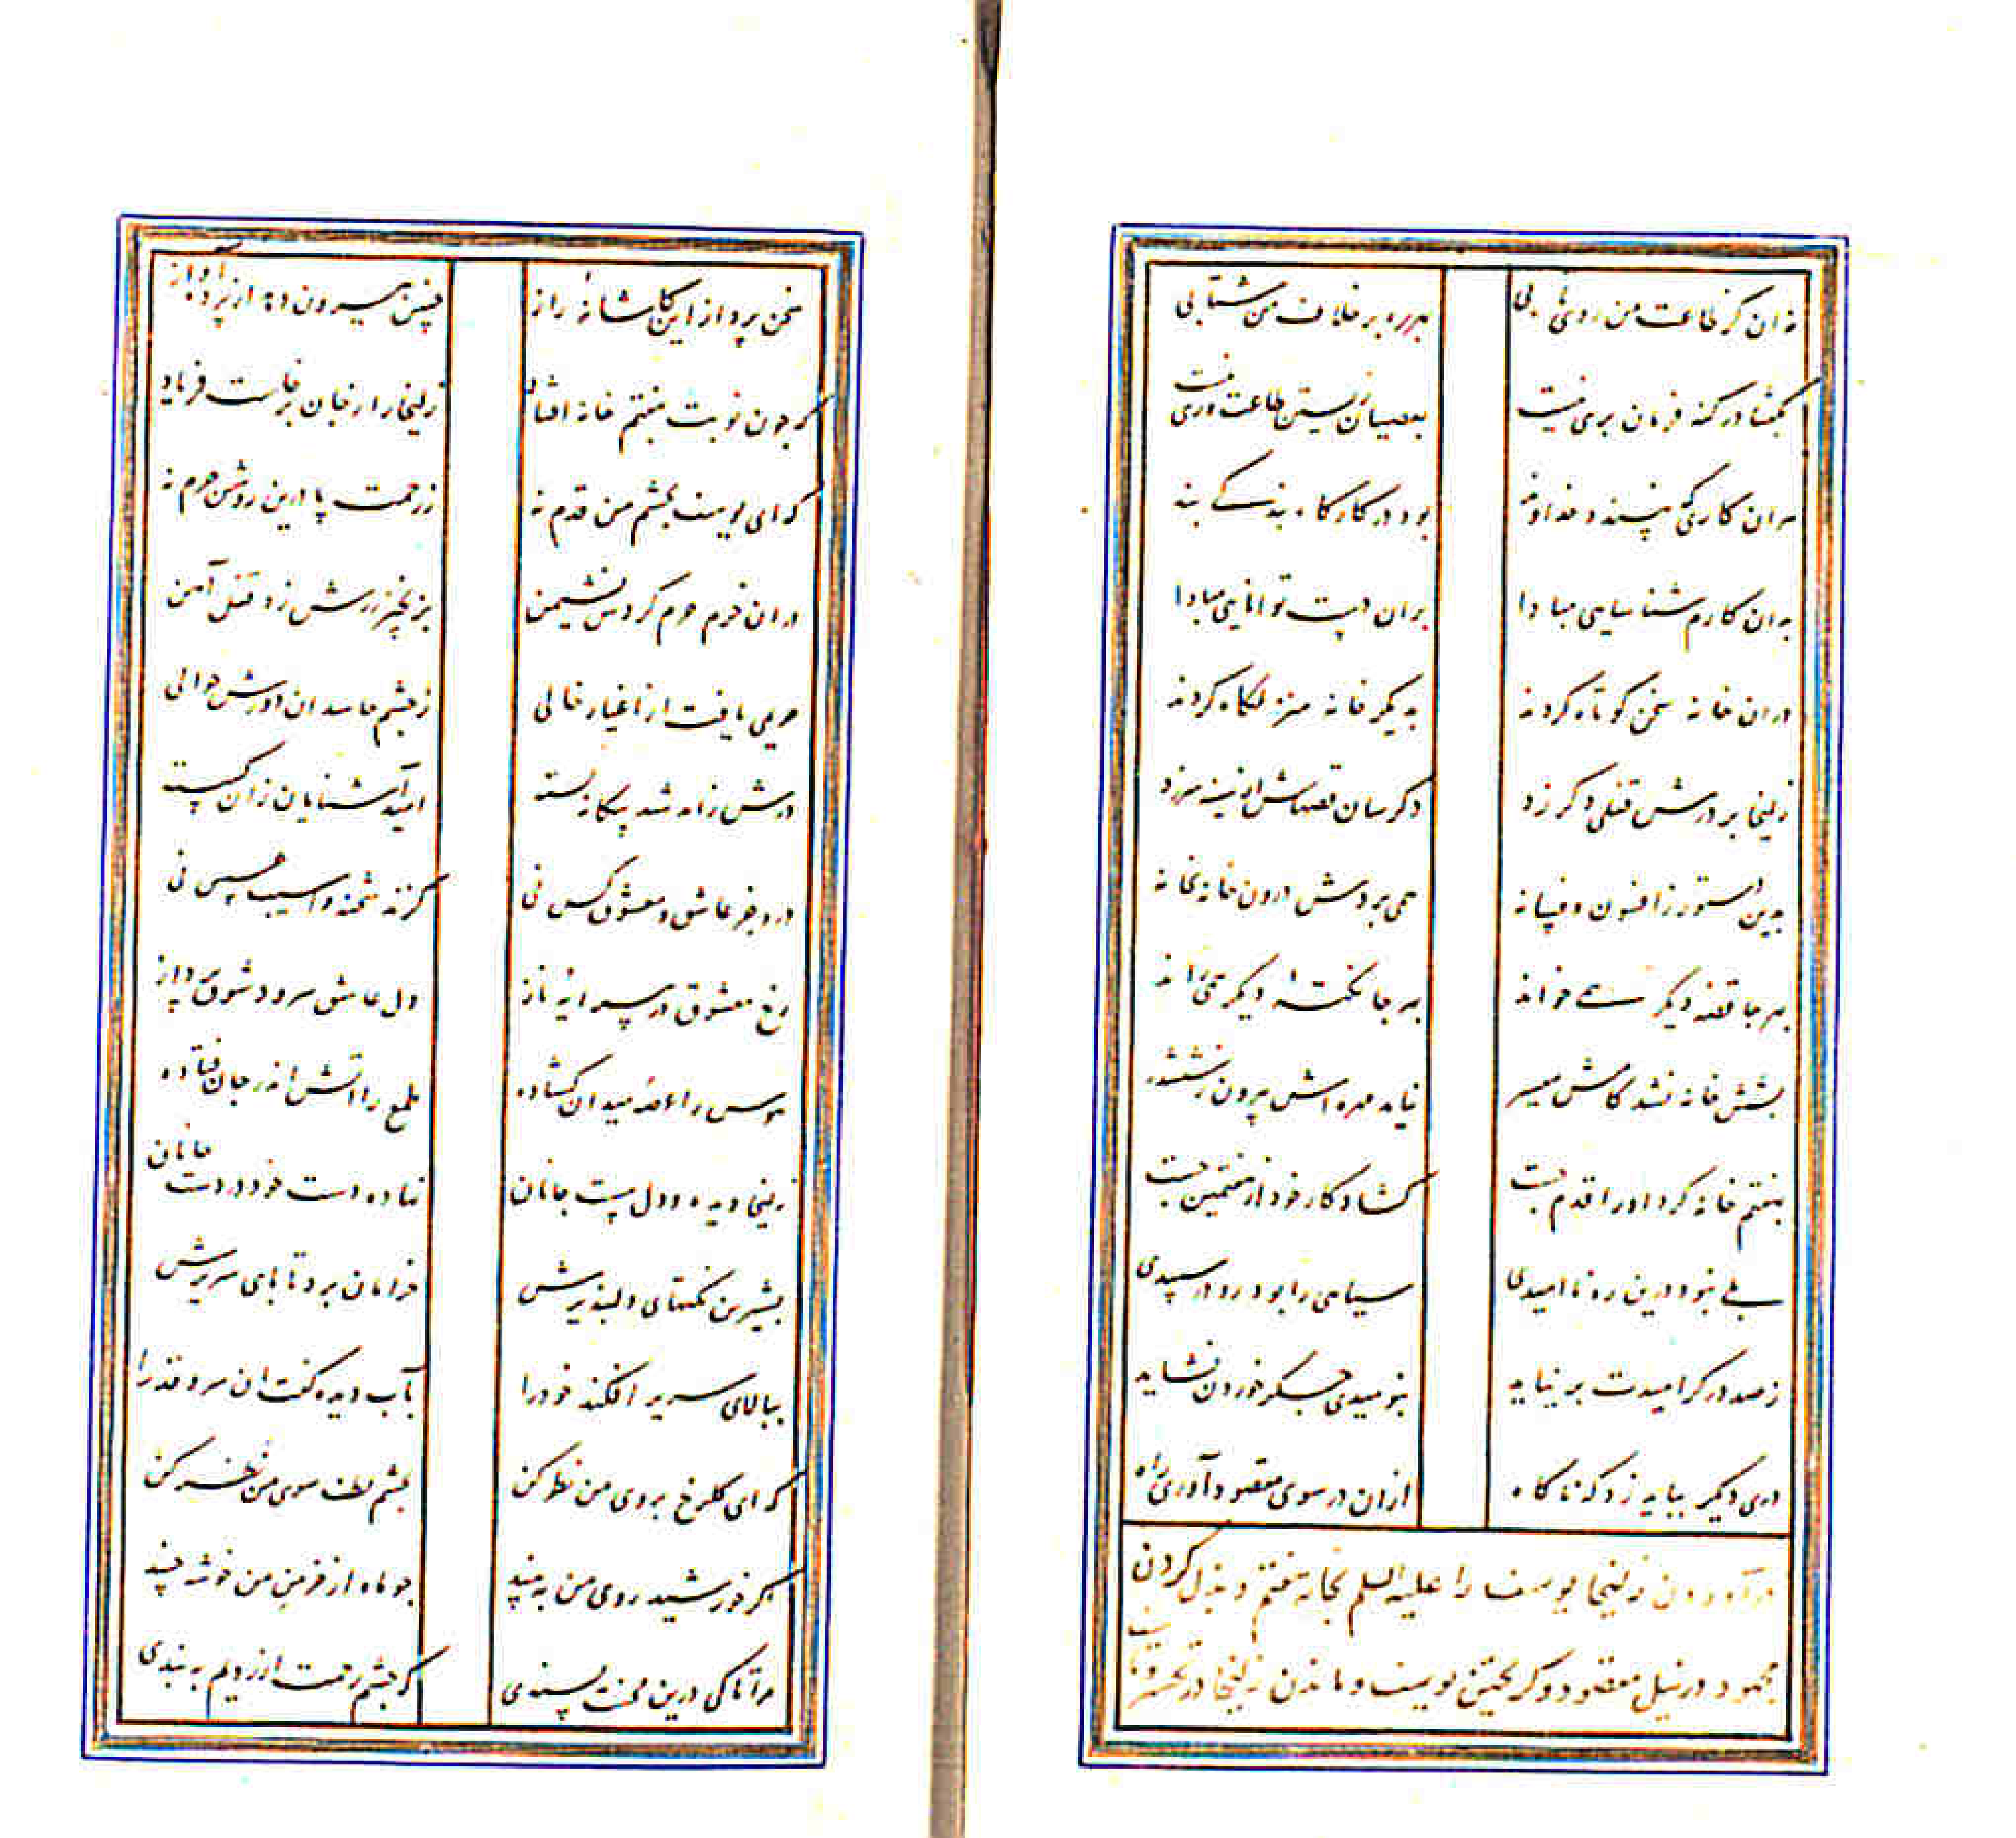 نه ان کز طاعت من روی تابی بهر ره بر خلاف من شتابی
بگفتا در گنه فرمان بری نیست بعصیان زیستن طاعت وری نیست
هر ان کاری که نپسندد خداوند بود در کارگاه بندگی بند
بدان کارم شناسایی مبادا بران دست توانایی مبادا
دران خانه سخن کوتاه کردند بدیگر خانه منزلگاه کردند
زلیخا بر درش قفلی دگر زد دگرسان قصهاش از سینه سر زد
بدین دستور ز افسون و فسانه همی بردش درون خانه بخانه
بهر جا قصه دیگر همی خواند بهر جا نکته دیگر همی راند
بشش خانه نشد کامش میسر نیامد مهره اش بیرون ز ششدر
بهفتم خانه کرد او را قدم چست گشاد کار خود از هفتمین جست
بلی نبود درین ره ناامیدی سیاهی را بود رو در سپیدی
ز صد در گر امیدت بر نیاید بنومیدی جگر خوردن نشاید
دری دیگر بباید زد که ناگاه ازان در سوی مقصود آوری راه
در آوردن زلیخا یوسف را علیه السلم بخانه هفتم و بذل کردن
مجهود در نیل مقصود و گریختن یوسف و ماندن زلیخا در تحسر
سخن پرداز این کاشانهٔ راز چنین بیرون دهد از پرده آواز
که چون نوبت بهفتم خانه افتاد زلیخا را ز جان برخاست فریاد
که ای یوسف بچشم من قدم نه ز رحمت پا درین روشن حرم نه
دران خرم حرم کردش نشیمن بزنجیر زرش زد قفل آهن
حریمی یافت از اغیار خالی ز چشم حاسدان دورش حوالی
درش ز آمد شد بیگانه بسته امید آشنایان زان گسسته
درو جز عاشق و معشوق کس نی گزند شحنه و آسیب عسس نی
رخ معشوق در پیرایهٔ ناز دل عاشق سرود شوق پرداز
هوس را عرصهٔ میدان گشاده طمع را آتش اندر جان فتاده
زلیخا دیده و دل مست جانان نهاده دست خود در دست جانان
بشیرین نکتهای دلپذیرش خرامان برد تا پای سریرش
ببالای سریر افکند خود را بآب دیده گفت ان سرو قد را
که ای گلرخ بروی من نظر کن بچشم لطف سوی من نظر کن
اگر خورشید روی من به بیند چو ماه از خرمن من خوشه چیند
مرا تا کی درین محنت پسندی که چشم رحمت از رویم به بندی